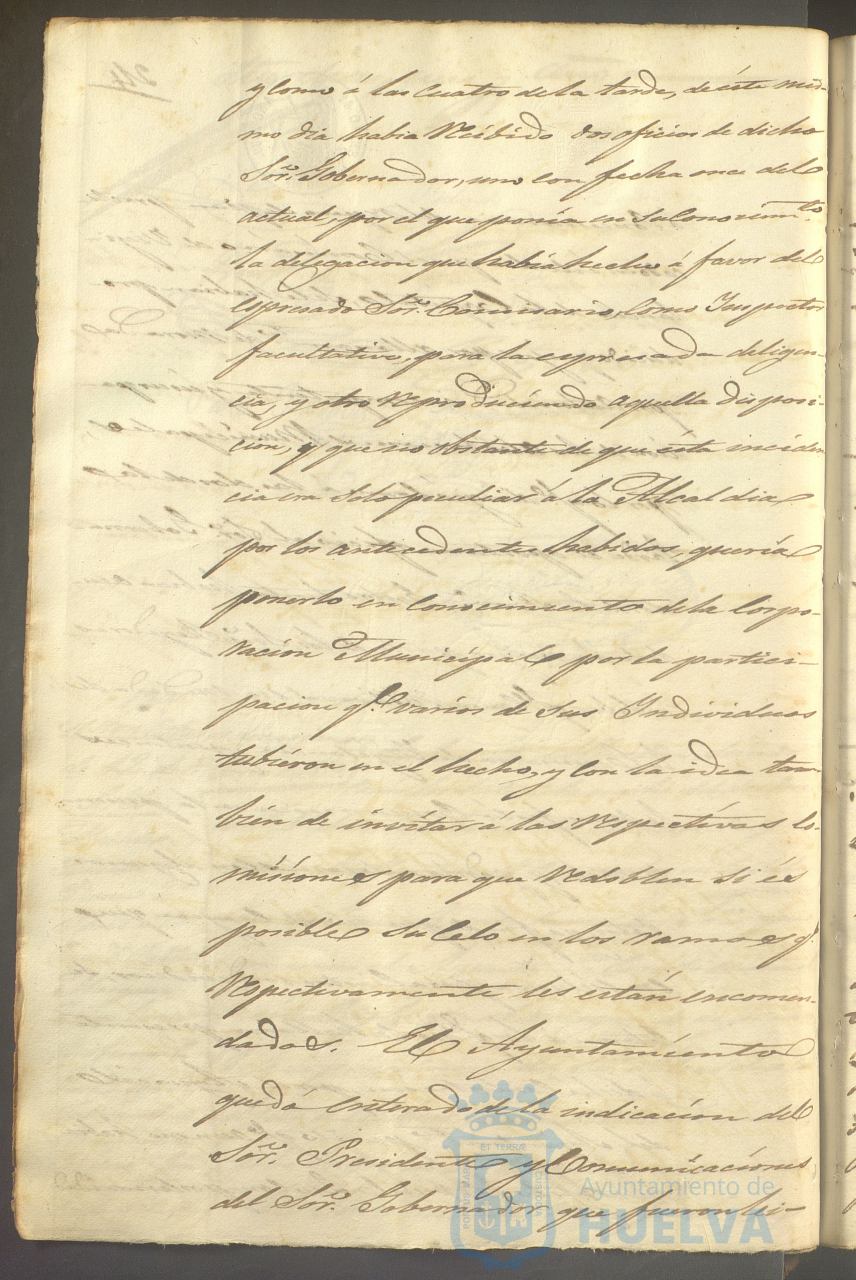 y como á las cuatro de la tarde, de éste mis-
mo dia habia recibido dos oficios de dicho
Sor. Gobernador, uno con fecha once del
actual, por el que ponía en su Conocimto.
la delegacion que había hecho á favor del
espresado Sor. Comisario, como Inspector
facultativo, para la espresada deligen-
cia, y otro reproduciendo aquella disposi-
cion, y que no obstante de que ésta inciden-
cia era solo peculiar á la Alcaldia
por los antecedentes habidos, quería
ponerlo en Conocimiento de la Corpo-
racion Municipal por la partici-
pacion q.e varios de sus Individuos
tubiéron en el hecho, y con la idea tam-
bién de invitar á las respectivas Co-
misiones para que redoblen si és
posible su Celo en los ramos q.e
respectivamente les están encomen-
dados. El Ayuntamiento
quedó enterado de la indicación del
Sor. Presidente y Comunicaciones
del Sor. Gobernador que fueron li-
Ayuntamiento de
HUELVA